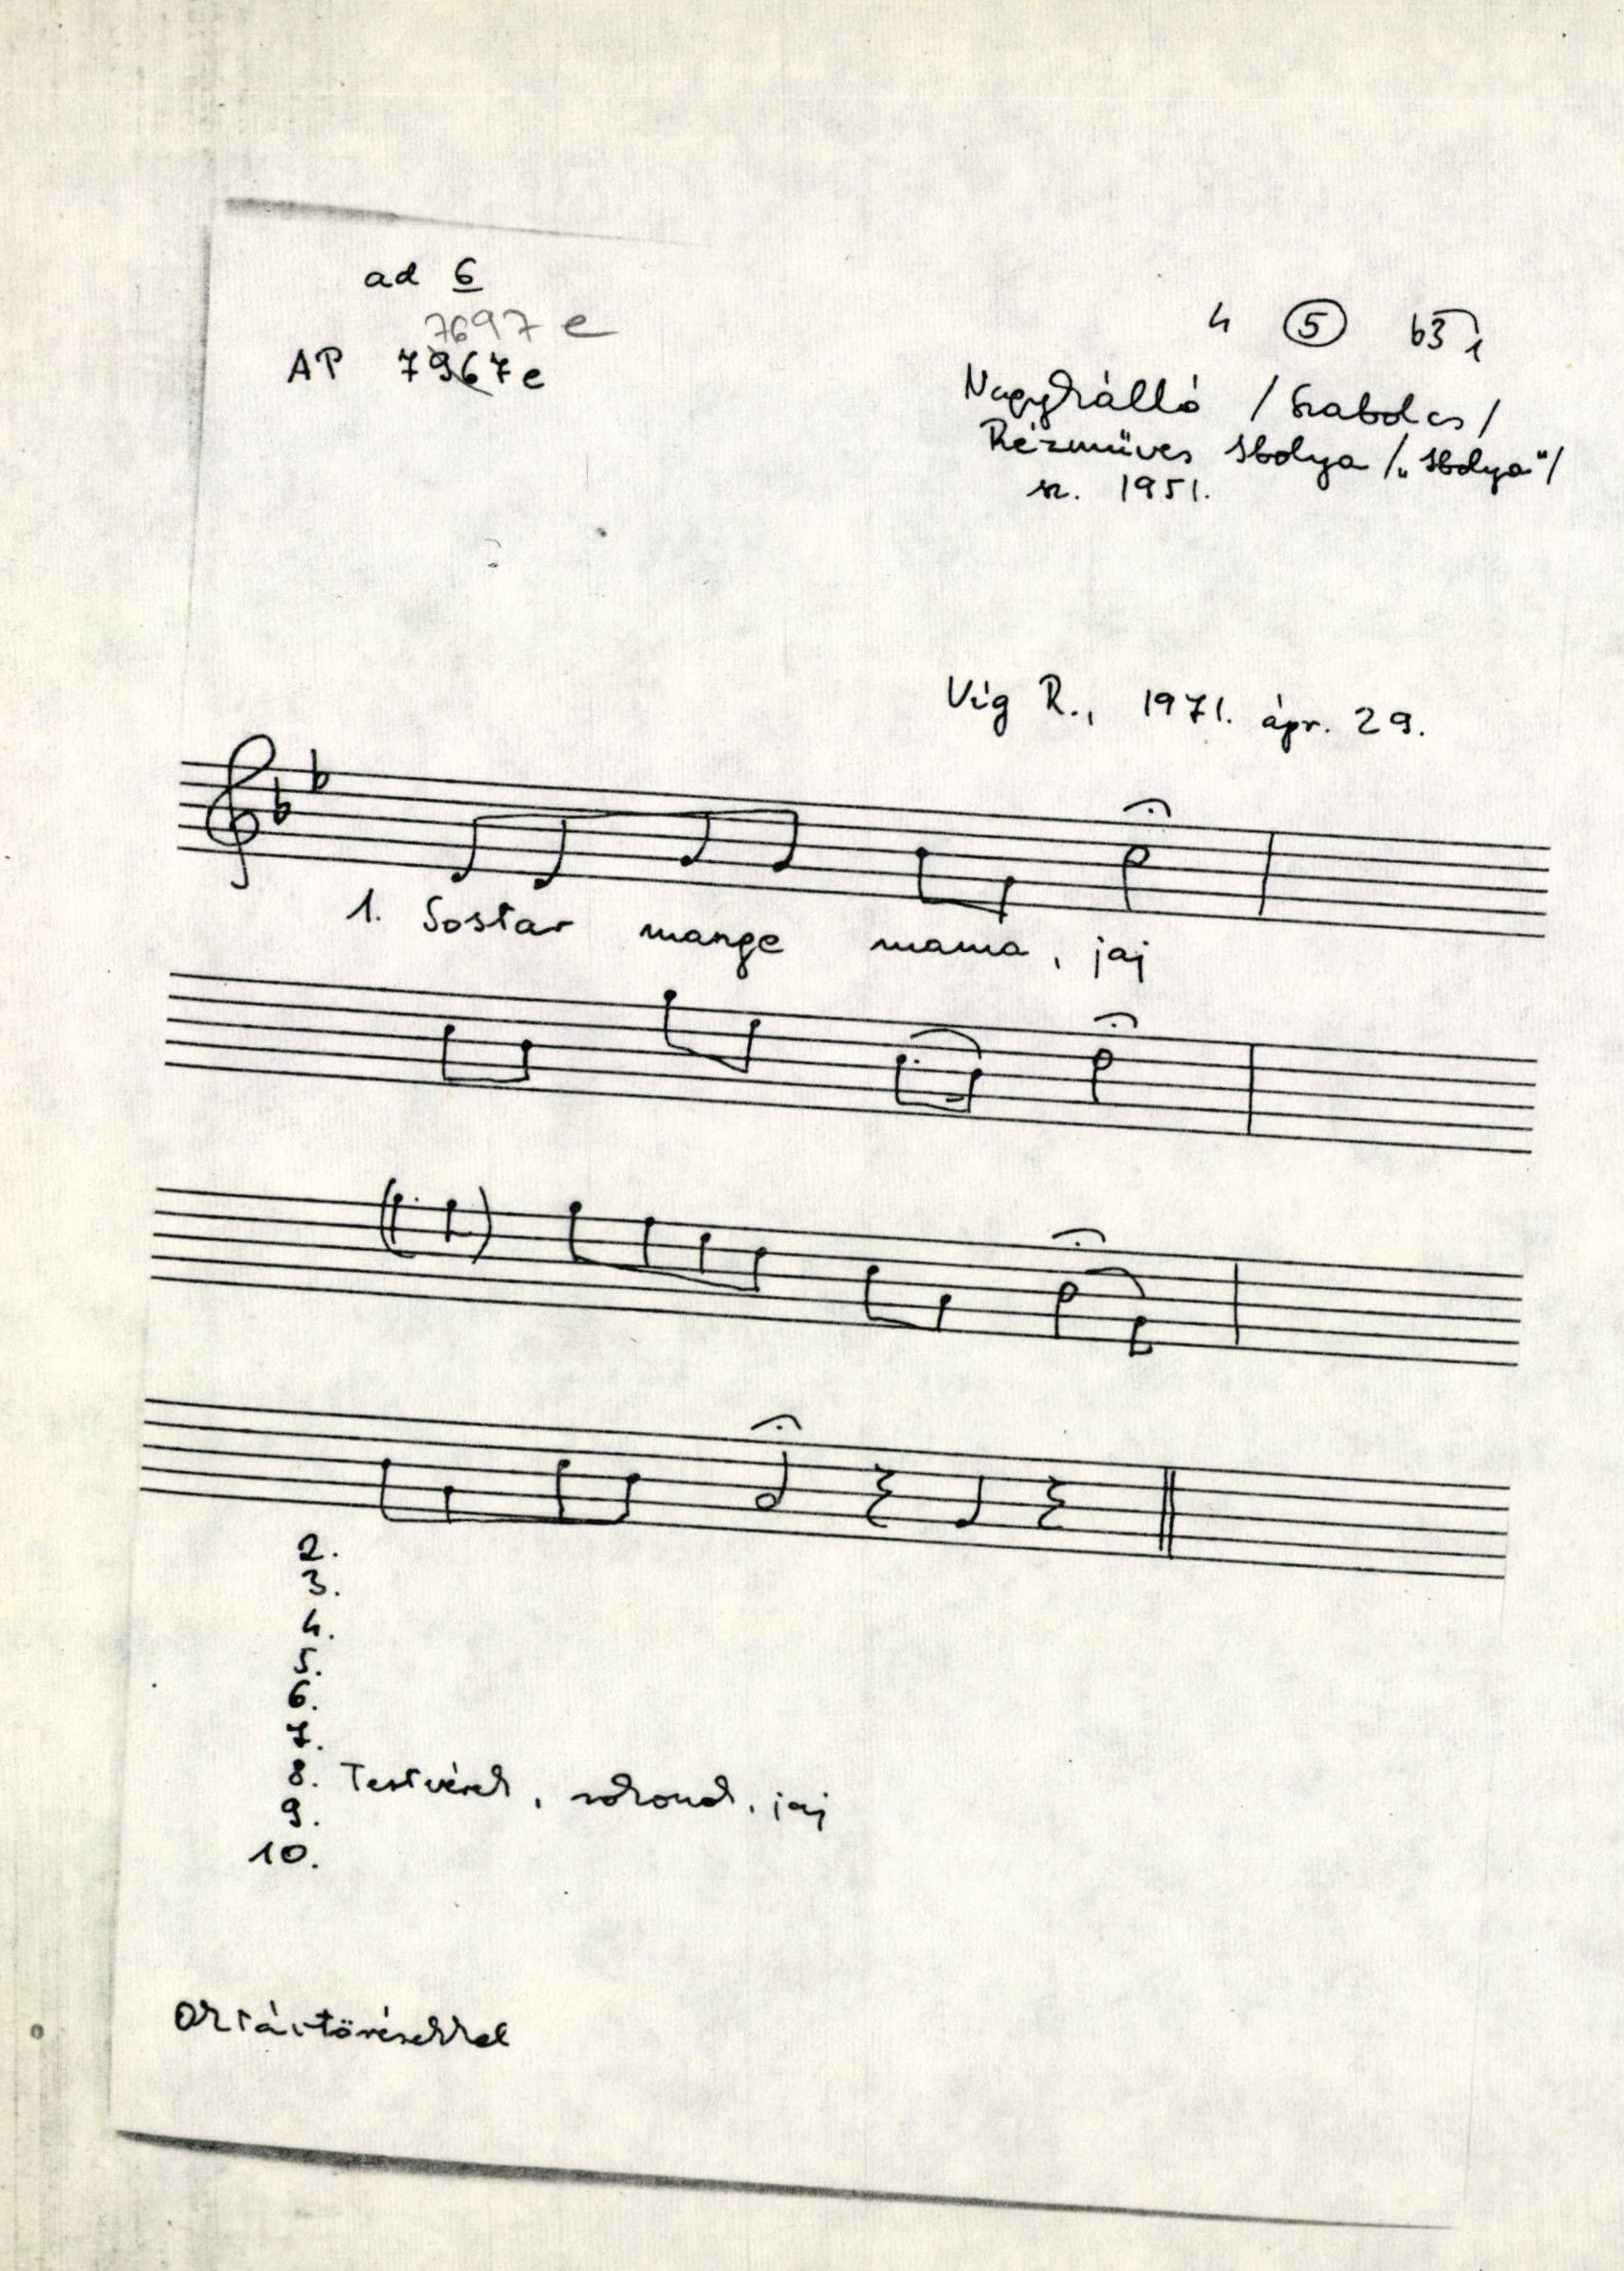 ad 6
7697 e
AP 7967e
4 5 b3 1
Nagykálló / Szabolcs /
Rézműves Ibolya /„Ibolya"/
sz. 1951.
Víg R., 1971. ápr. 29.
1. Sostar mange mama, jaj
2.
3.
4.
5.
6.
7.
8. Testvérek, rokonok, jaj
9.
10.